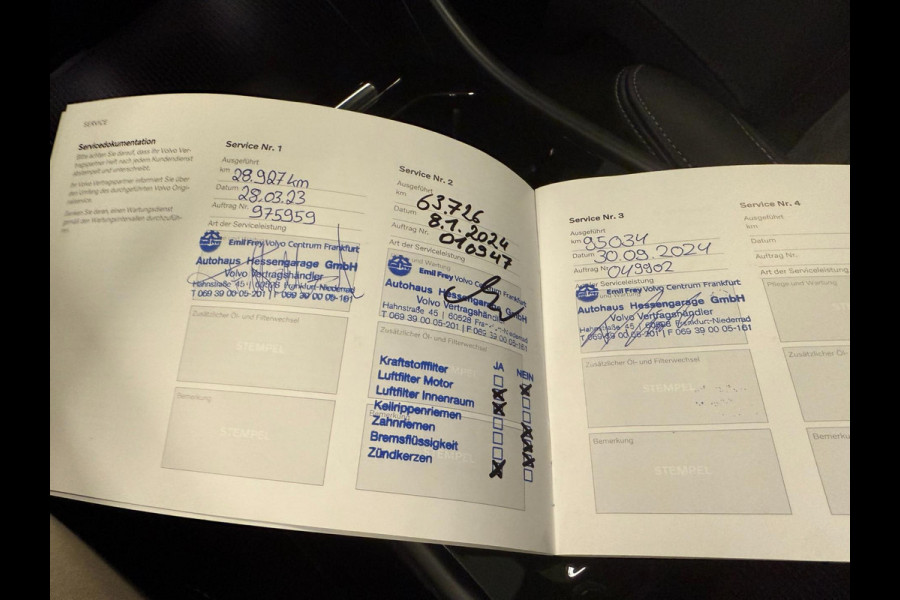 SERVICE
Servicedokumentation
Bitte achten Sie darauf, dass Ihr Volvo Ver-
tragspartner Heft nach jedem Kundendienst
abstempelt und unterschreibt.
Ihr Volvo Vertragspartner informiert Sie über
den Umfang des durchgeführten Volvo Origi-
nalservice.
Denken Sie daran, einen Wartungsdienst
gemäß den Wartungsintervallen durchzufüh-
ren.
Service Nr. 1
Ausgeführt
km 28.927 km
Datum 28.03.23
Auftrag Nr. 975959
Art der Serviceleistung
Emil Frey Volvo Centrum Frankfurt
Autohaus Hessengarage GmbH
Volvo Vertragshändler
Hahnstraße 45 | 60528 Frankfurt-Niederrad
T 069 39 00 05-201 | F 069 39 00 05-161
Zusätzlicher Öl- und Filterwechsel
STEMPEL
Bemerkung
STEMPEL
Service Nr. 2
Ausgeführt
km 63.726
Datum 8.1.2024
Auftrag Nr. 010947
Art der Serviceleistung
und Wartung
Emil Frey Volvo Centrum Frankfurt
Autohaus Hessengarage GmbH
Volvo Vertragshändler
Hahnstraße 45 | 60528 Frankfurt-Niederrad
T 069 39 00 05-201 | F 069 39 00 05-161
Zusätzlicher Öl- und Filterwechsel
JA NEIN
Kraftstofffilter
Luftfilter Motor
Luftfilter Innenraum
Keilrippenriemen
Bemerkung
Zahnriemen
Bremsflüssigkeit
Zündkerzen
Service Nr. 3
Ausgeführt
km 95034
Datum 30.09.2024
Auftrag Nr. 049902
Art der Serviceleistung
und Wartung
Emil Frey Volvo Centrum Frankfurt
Autohaus Hessengarage GmbH
Volvo Vertragshändler
Hahnstraße 45 | 60528 Frankfurt-Niederrad
T 069 39 00 05-201 | F 069 39 00 05-161
Zusätzlicher Öl- und Filterwechsel
STEMPEL
Bemerkung
STEMPEL
Service Nr. 4
Ausgeführt
km
Datum
Auftrag Nr.
Art der Serviceleistung
Pflege und Wartung
Zusätzlicher Öl-
Bemerku